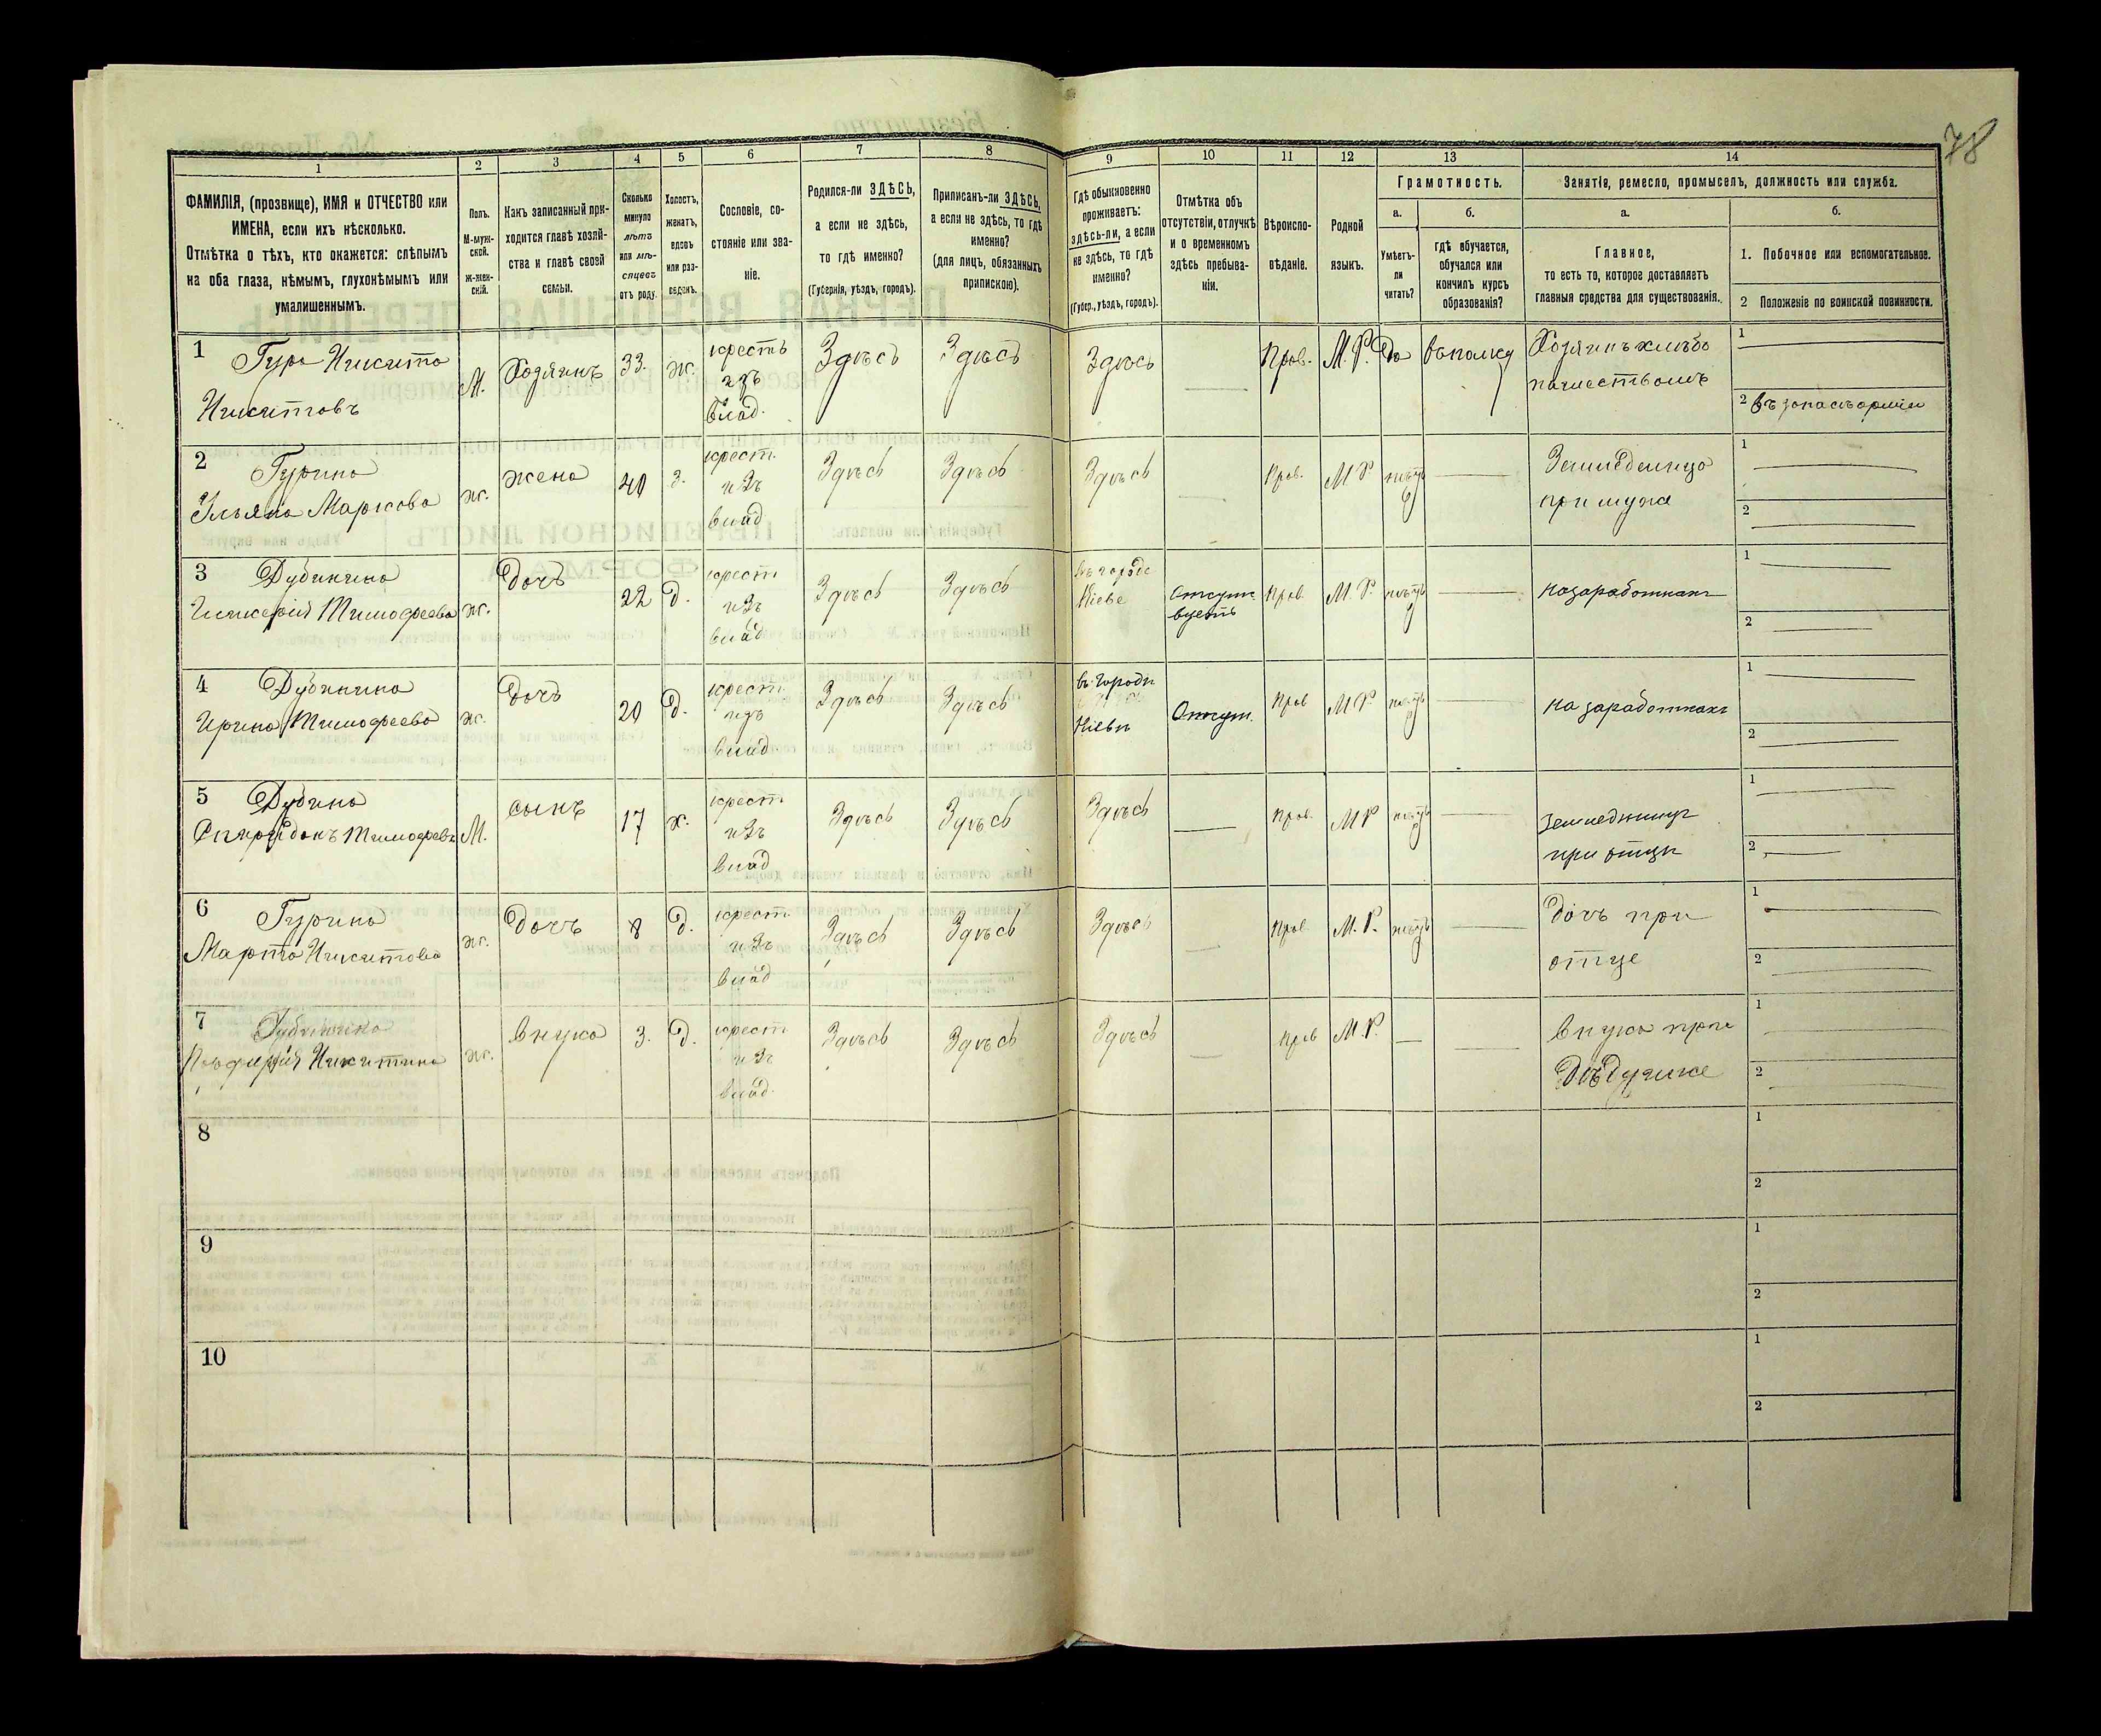 78
1
2
3
4
5
6
7
8
9
10
11
12
13
14
ФАМИЛІЯ, (прозвище), ИМЯ и ОТЧЕСТВО или
ИМЕНА, если ихъ нѣсколько.
Отмѣтка о тѣхъ, кто окажется: слѣпымъ
на оба глаза, нѣмымъ, глухонѣмымъ или
умалишеннымъ.
Полъ.
М-муж-
ской.
ж-жен-
скій.
Какъ записанный при-
ходится главѣ хозяй-
ства и главѣ своей
семьи.
Сколько
минуло
лѣтъ
или мѣ-
сяцевъ
отъ роду.
Холостъ,
женатъ,
вдовъ
или раз-
веденъ.
Сословіе, со-
стояніе или зва-
ніе.
Родился-ли ЗДѢСЬ,
а если не здѣсь,
то гдѣ именно?
(Губернія, уѣздъ, городъ).
Приписанъ-ли ЗДѢСЬ,
а если не здѣсь, то гдѣ
именно?
(для лицъ, обязанныхъ
припискою).
Гдѣ обыкновенно
проживаетъ:
здѣсь-ли, а если
не здѣсь, то гдѣ
именно?
(Губер., уѣздъ, городъ).
Отмѣтка объ
отсутствіи, отлучкѣ
и о временномъ
здѣсь пребыва-
ніи.
Вѣроиспо-
вѣданіе.
Родной
языкъ.
Грамотность.
а.
Умѣетъ-
ли
читать?
б.
гдѣ обучается,
обучался или
кончилъ курсъ
образованія?
Занятія, ремесло, промыселъ, должность или служба.
а.
Главное,
то есть то, которое доставляетъ
главныя средства для существованія.
б.
1. Побочное или вспомогательное.
2 Положеніе по воинской повинности.
1 Гура Никита
Никитовъ
М.
Хозяинъ
33.
ж.
крестъ
изъ
влад.
Здѣсь
Здѣсь
Здѣсь
Прав.
М.Р.
Да
Хозяинъ хлѣбо
пашествомъ
1
2 въ запасъ арміи
2 Гурина
Ульяна Маркова
ж.
жена
40
з.
крест.
изъ
влад
Здѣсь
Здѣсь
Здѣсь
Прав.
М Р
нѣтъ
Земледелица
при мужа
1
2
3 Дубинина
Гликерия Тимофеева
ж.
дочъ
22
д.
крест
изъ
влад
Здѣсь
Здѣсь
въ городе
Кіеве
Отсут
вуетъ
Прав
М.Р.
нѣтъ
на заработкахъ
1
2
4 Дубинина
Ирина Тимофеева
ж.
дочъ
20
д.
крест
изъ
влад
Здѣсь
Здѣсь
въ городѣ
Кіевѣ
Отсут.
Прав
М Р
нѣтъ
на заработкахъ
1
2
5 Дубина
Спиридонъ Тимофеевъ
М.
сынъ
17
х.
крест
изъ
влад
Здѣсь
Здѣсь
Здѣсь
Прав.
М Р
нѣтъ
при отцѣ
1
2
6 Гурина
Марта Никитова
ж.
дочъ
8
д.
крест
изъ
влад
Здѣсь
Здѣсь
Здѣсь
Прав
М.Р.
нѣтъ
дочъ при
отце
1
2
7
Никитина
ж.
внука
3.
д.
крест
изъ
влад.
Здѣсь
Здѣсь
Здѣсь
Прав
М.Р.
внука при
дѣдушке
1
2
8
1
2
9
1
2
10
1
2